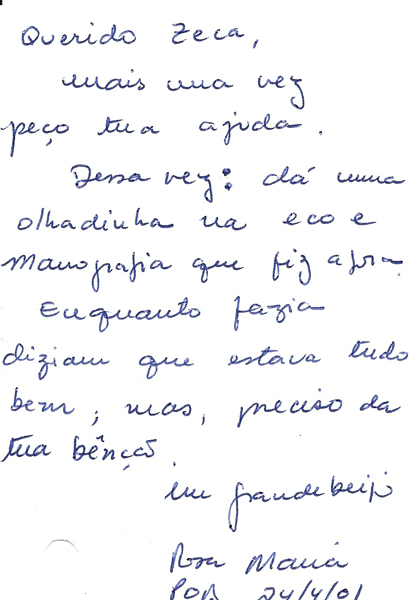 Querido Zeca,
mais uma vez
peço tua ajuda.
Dessa vez: dá uma
olhadinha na eco e
Manografia que fiz agora.
Enquanto fazia
diziam que estava tudo
bem, mas, preciso da
tua bênção.
um grande beijo
Rosa Maria
POA 24/4/01